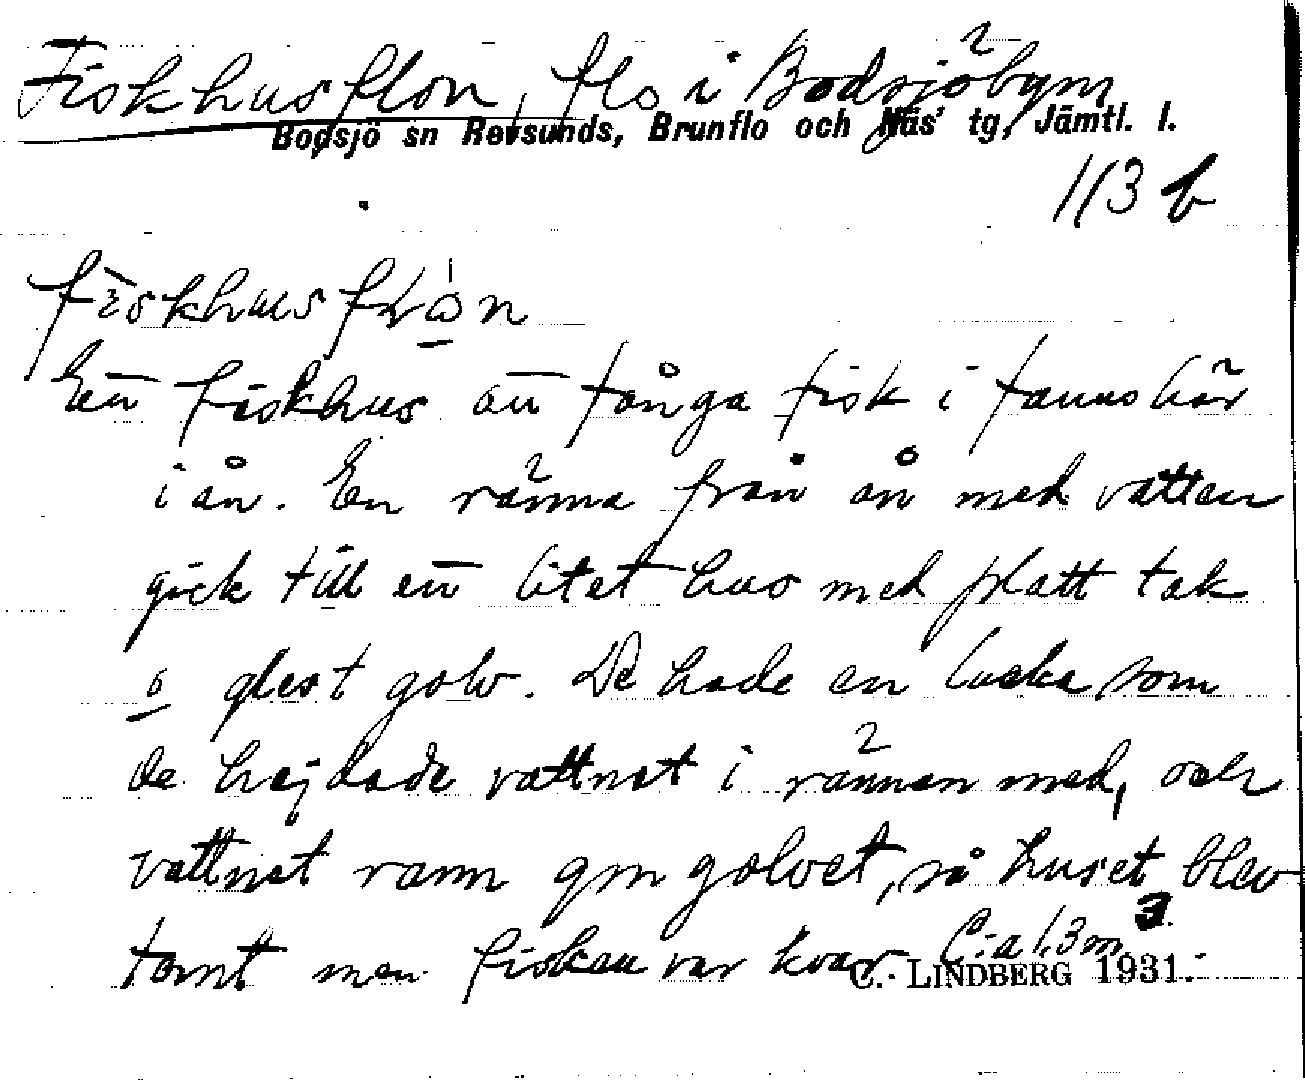 Fiskhusflon, flo i Bodsjöbyn
Bodsjö sn Revsunds, Brunflo och Näs' tg, Jämtl. l.
113 b
Ett fiskhus att fånga fisk i fanns här
i ån. En ränna från ån med vatten
gick till ett litet hus med platt tak
o glest golv. De hade en lucka som
de hejdade vattnet i rännan med, och
vattnet rann gm golvet, så huset blev
tomt men fisken var kvar C:a 1,3 m³
C. LINDBERG 1931.